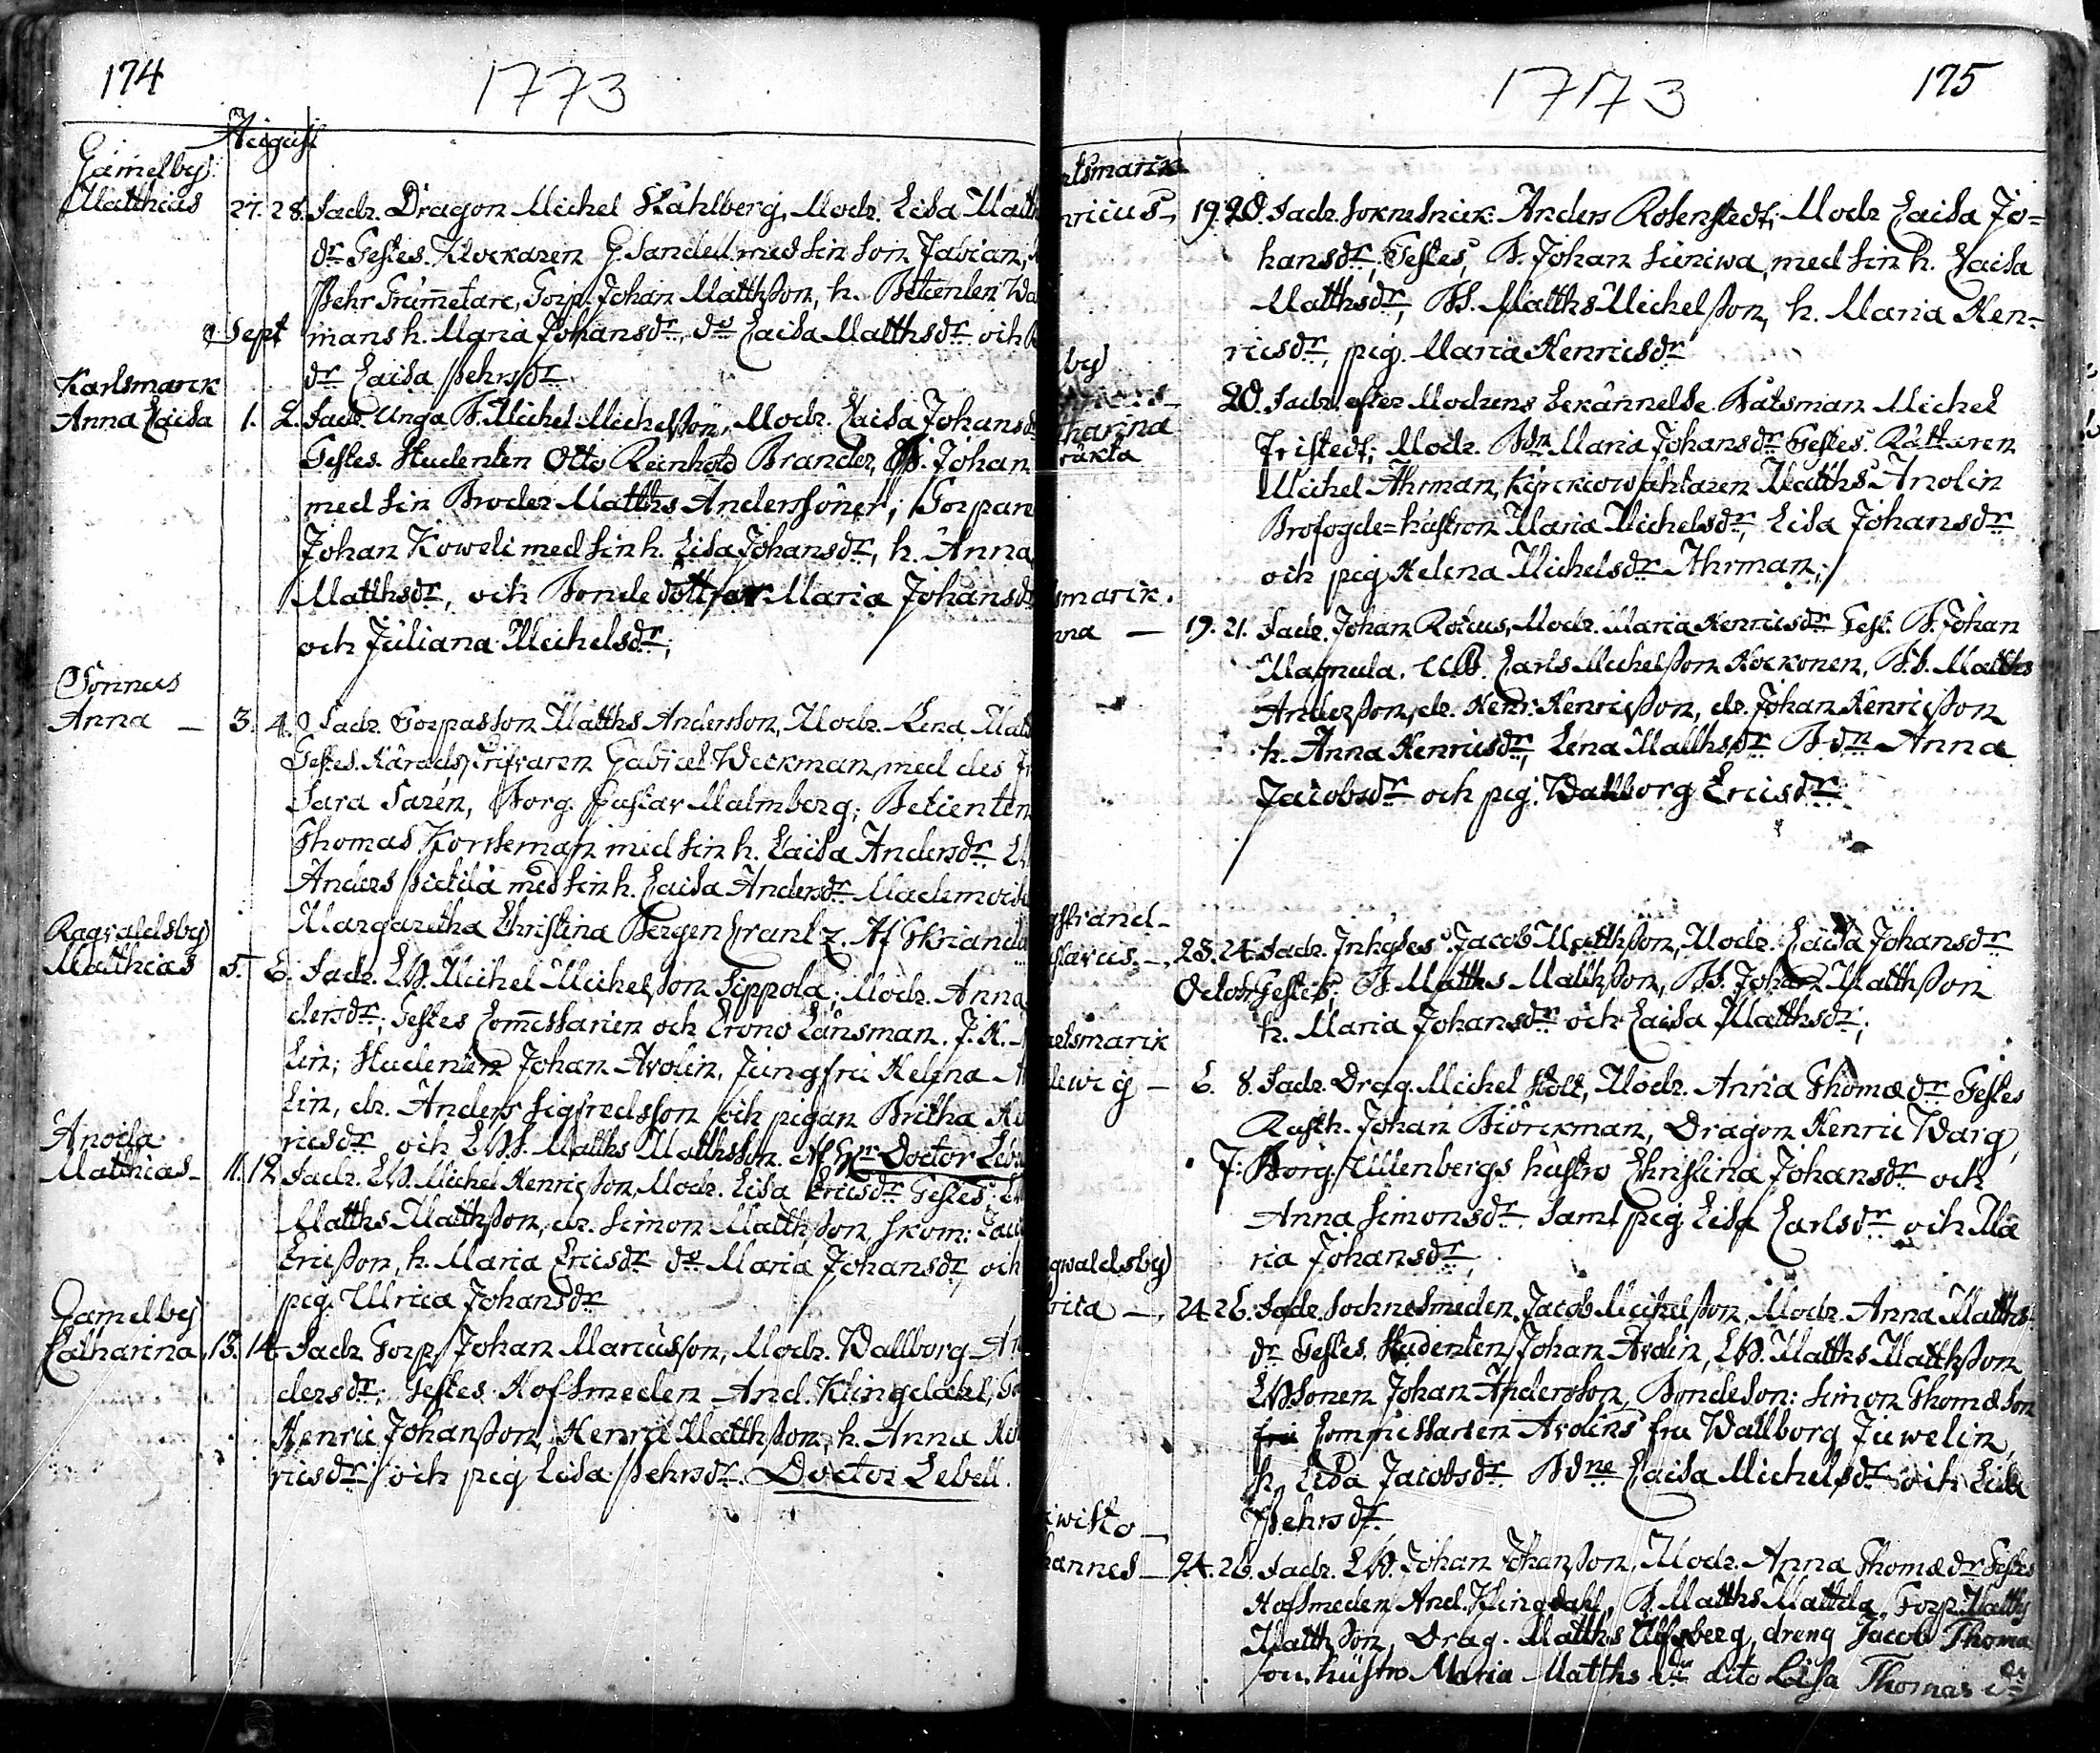 174
1773
August
Gamelby
Matthias 27. 28. Fadr. Dragon Michel Ståhlberg, Modr. Lisa Matth
dr Testes. Klockaren G. Sandell med sin son Fabian,
Pehr Trumetare, Torp. Johan Matthsson, h. Betienten Wa
Sept mans h. Maria Johansdr, do Caisa Matthsdr och
dr Caisa Pehrsdr
Karlsmarck
Anna Caisa 1. 2. Fadr. Unga B. Michel Michelsson, Modr. Caisa Johansdr
Testes. Studenten Otto Reinhold Brander, B. Johan
med sin Broder Matths Anderssöner; Torpare
Johan Koweli med sin h. Lisa Johansdr, h. Anna
Matthsdr, och Bondedottrar Maria Johansdr
och Juliana Michelsdr;
Sonnäs
Anna — 3. 4. Fadr. Torparsson Matths Andersson, Modr. Lena Mat
Testes. Häradsskrifvaren Gabriel Weckman med des
Sara Saren, Borg. Gustav Malmberg; Betienten
Thomas Forssman med sin h. Caisa Andersdr
Anders Pietilä med sin h. Caisa Andersdr Mademoisel
Margaretha Christina Bergencrantz. Af
Ragvaldsby
Matthias 5. 6. Fadr. LB. Michel Michelsson Sippola; Modr. Anna
dersdr; Testes Commissarien och Crono Länsman. J. H.
lin; Studenten Johan Avolin, Jungfru Helena A
lin, dr. Anders Sigfredsson och pigan Britha He
ricsdr och LBS. Matths Matthsson. Af Hr Doctor Lebe
Anoila
Matthias — 11. 12. Fadr. LB. Michel Henricsson, Modr. Lisa Ericsdr Testes
Matths Matthsson, dr. Simon Matthsson, skom:
Ericsson, h. Maria Ericsdr do Maria Johansdr och
pig. Ulrica Johansdr
Gamelby
Catharina 13. 14. Fadr. Torp. Johan Marcusson, Modr. Wallborg An
dersdr; Testes Hofsmeden And. Klingdahl,
Henric Johansson, Henric Matthsson, h. Anna He
ricsdr och pig Lisa Pehrsdr. Doctor Lebell.
1773
175
lsmarck
nricus — 19. 20. Fadr. Soknesnick: Anders Rosenstedt, Modr Caisa Jo=
hansdr, Testes, B. Johan Suniwa, med sin h. Caisa
Matthsdr, BS. Matths Michelsson, h. Maria Hen-
ricsdr, pig. Maria Henricsdr
by
20. Fadr. efter Modrens bekännelse Båtsman Michel
tharina Fristedt; Modr. Bdn Maria Johansdr Testes Rättaren
oäkta Michel Ahrman, Kyrckiowäktaren Matths Avolin
Brofogde=hustron Maria Michelsdr, Lisa Johansdr
och pig. Helena Michelsdr Ahrman;
smarck.
nna — 19. 21. Fadr. Johan Rotcus, Modr. Maria Henricsdr Test. B. Johan
Magnula, UB. Carls Michelsson Kockonen, B.S. Matths
Andersson, dr. Henr. Henricsson, dr. Johan Henricsson
h. Anna Henricsdr, Lena Matthsdr Bdn Anna
Jacobsdr och pig. Wallborg Ericsdr
gstrand —
stavus. — 23. 24. Fadr. Inhyses Jacob Matthsson, Modr. Caisa Johansdr
Octobr Testes, B. Matths Matthsson, BS. Johan Matthsson
h. Maria Johansdr och Caisa Matthsdr;
elsmarck
dewig — 6. 8. Fadr. Drag. Michel Stolt, Modr. Anna Thomædr Testes
Rusth. Johan Biörckman, Dragon Henric Warg,
F: Borg. Ullenbergs hustro Christina Johansdr och
Anna Simonsdr Samt pig. Lisa Carlsdr och Ma
ria Johansdr,
gwaldsby
rita — 24. 26. Fadr. Socknesmeden Jacob Michelsson, Modr. Anna Matths
dr Testes. Studenten Johan Avolin, LB. Matths Matthsson
LBSonen Johan Andersson, Bondeson: Simon Thomæson
fru Commissarien Avolins fru Wallborg Juwelin,
h. Lisa Jacobsdr Bdne Caisa Michelsdr och Lisa
Pehrsdr.
iwisto —
hannes — 24. 26. Fadr. LB. Johan Johansson, Modr. Anna Thomædr Testes
Hofsmeden And. Klingdahl, B. Matths Mattila, Torp. Matths
Matthsson, Drag. Matths Ulfsberg, dreng Jacob Thoma
son. hustro Maria Matths dr dito Lisa Thomas dr